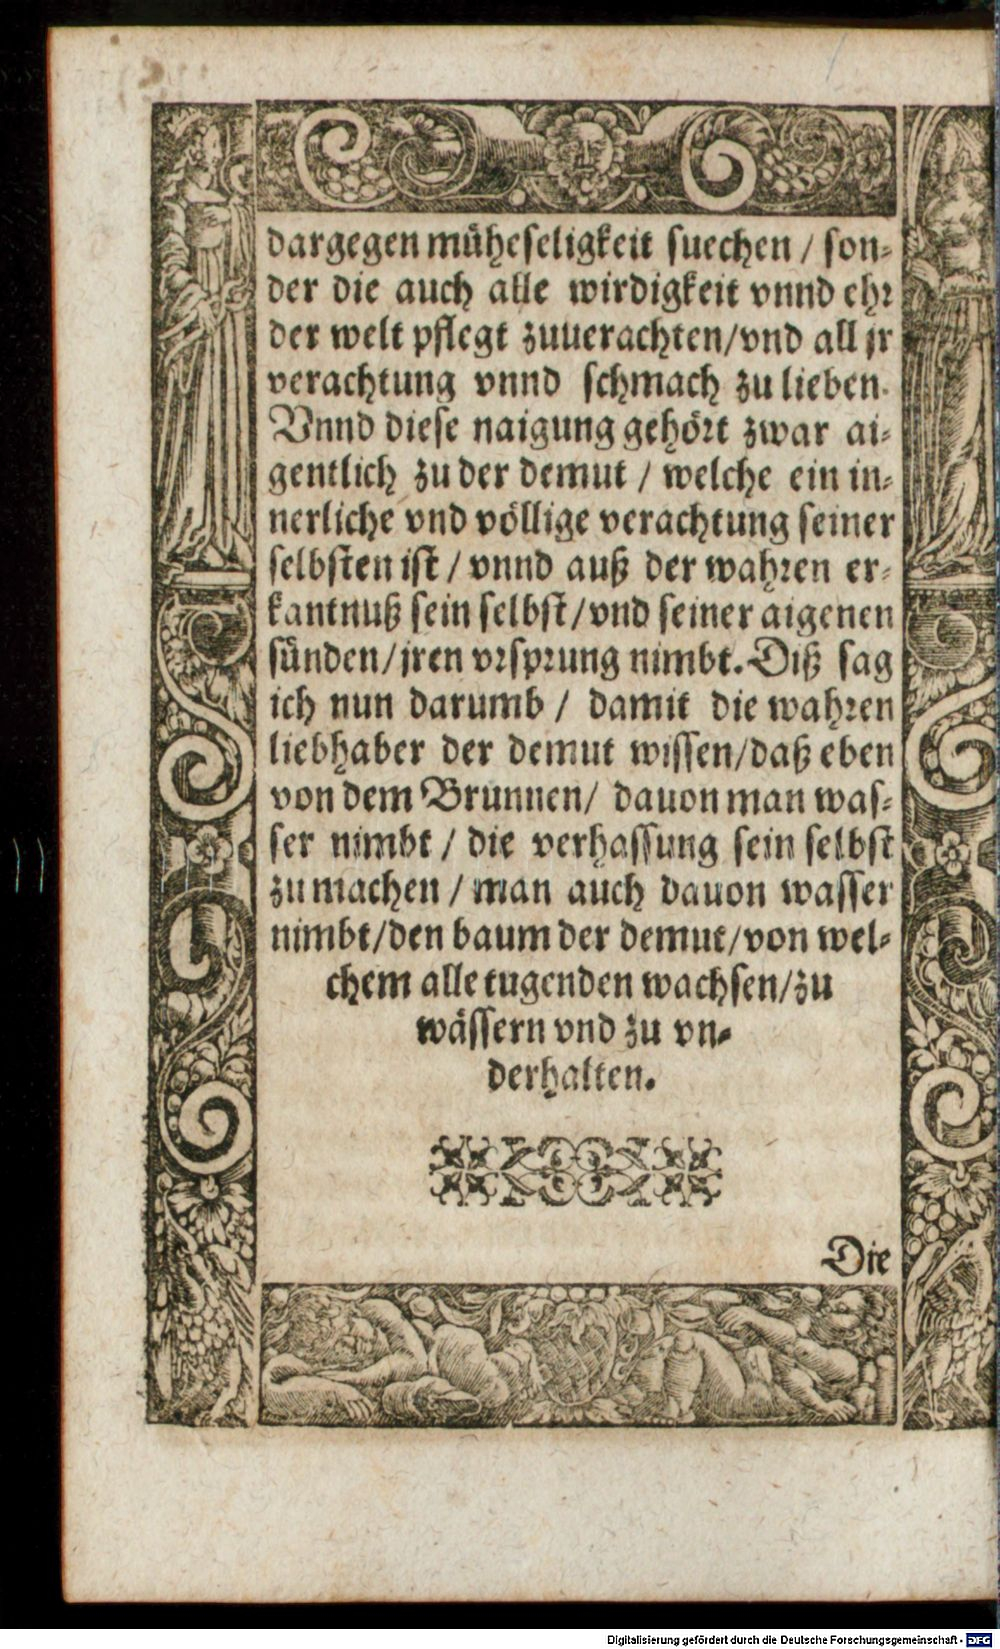 dargegen müheseligkeit suechen / son-
der die auch alle wirdigkeit vnnd ehr
der welt pflegt zuuerachten/vnd all jr
verachtung vnnd schmach zu lieben.
Vnnd diese naigung gehört zwar ai-
gentlich zu der demut / welche ein in-
nerliche vnd völlige verachtung seiner
selbsten ist / vnnd auß der wahren er-
kantnuß sein selbst/vnd seiner aigenen
sünden/jren vrsprung nimbt. Diß sag
ich nun darumb / damit die wahren
liebhaber der demut wissen/daß eben
von dem Brunnen/ dauon man was-
ser nimbt / die verhassung sein selbst
zu machen / man auch dauon wasser
nimbt/den baum der demut/von wel-
chem alle tugenden wachsen/zu
wässern vnd zu vn-
derhalten.
Die
Digitalisierung gefördert durch die Deutsche Forschungsgemeinschaft - DFG